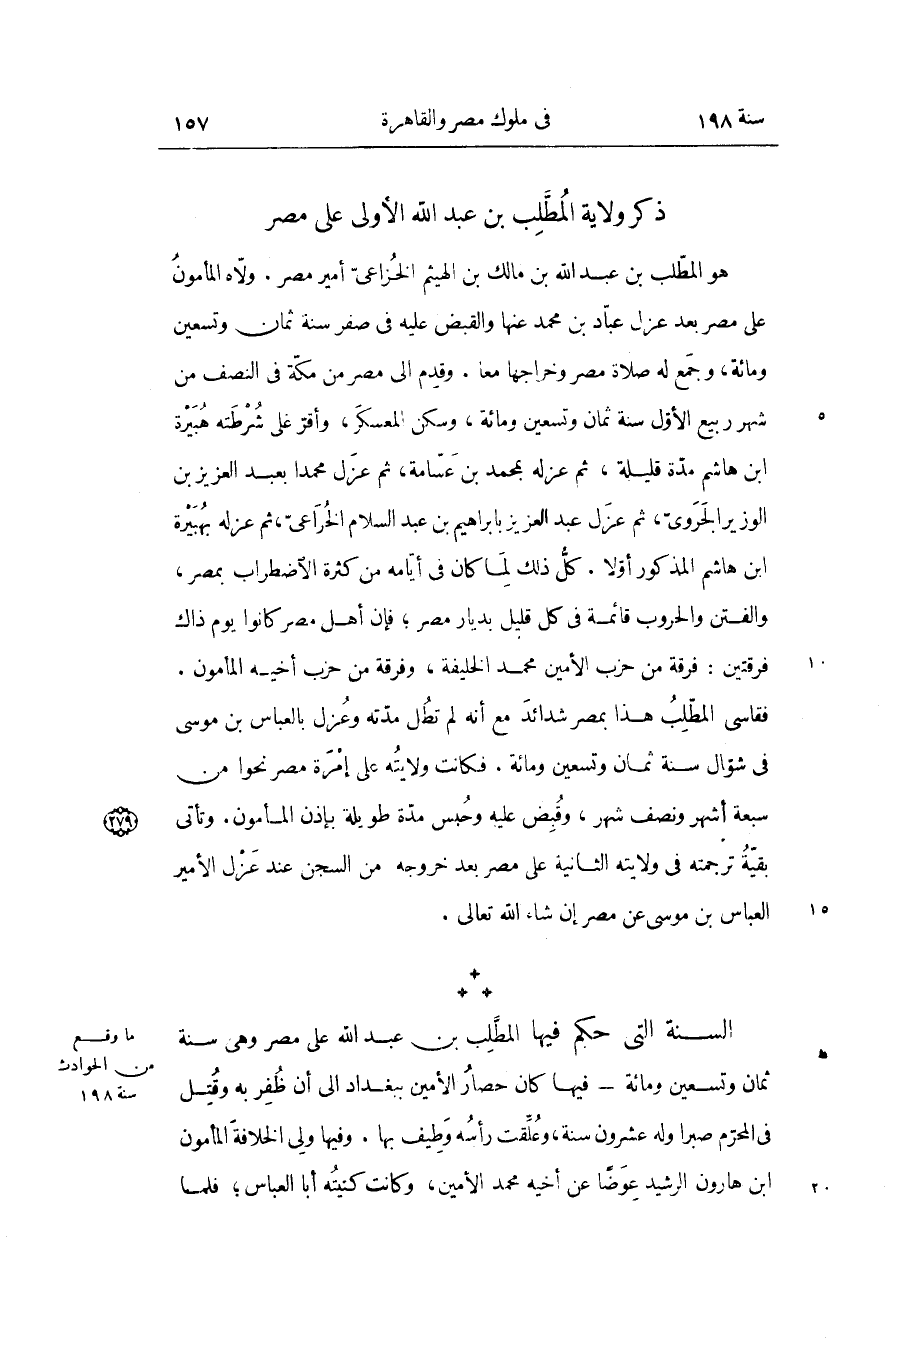 سنة ١٩٨ فى ملوك مصر والقاهرة ١٥٧
ذكر ولاية المُطَّلِب بن عبد الله الأولى على مصر
هو المطّلب بن عبد الله بن مالك بن الهيثم الخُزاعىّ أمير مصر . ولّاه المأمونُ
على مصر بعد عزل عبّاد بن محمد عنها والقبض عليه فى صفر سنة ثمان وتسعين
ومائة، وجمَع له صلاة مصر وخراجها معا . وقدِم الى مصر من مكّة فى النصف من
٥ شهر ربيع الأوّل سنة ثمان وتسعين ومائة ، وسكن المعسكَر ، وأقرّ على شُرْطَته هُبَيْرة
ابن هاشم مدّة قليلة ، ثم عزله بمحمد بن عَسّامة، ثم عزَل محمدا بعبد العزيز بن
الوزير الجَرَوىّ، ثم عزَل عبد العزيز بابراهيم بن عبد السلام الخُزَاعىّ، ثم عزله بهُبَيْرة
ابن هاشم المذكور أوّلا . كلُّ ذلك لِمَا كان فى أيّامه من كثرة الاضطراب بمصر ،
والفتن والحروب قائمة فى كل قليل بديار مصر ؛ فإن أهل مصر كانوا يوم ذاك
١٠ فرقتين : فرقة من حزب الأمين محمد الخليفة ، وفرقة من حزب أخيه المأمون .
فقاسى المطّلِبُ هذا بمصر شدائدَ مع أنه لم تطُل مدّته وعُزِل بالعباس بن موسى
فى شوّال سنة ثمان وتسعين ومائة . فكانت ولايتُه على إمْرَة مصر نحوا من
سبعة أشهر ونصف شهر ، وقُبِض عليه وحُبس مدّة طويلة بإذن المأمون. وتأتى ٢٧٩
بقيّةُ ترجمته فى ولايته الثانية على مصر بعد خروجه من السجن عند عَزْل الأمير
١٥ العباس بن موسى عن مصر إن شاء الله تعالى .
السنة التى حكم فيها المطَّلِب بن عبد الله على مصر وهى سنة
ما وقع
من الحوادث
سنة ١٩٨
ثمان وتسعين ومائة — فيها كان حصارُ الأمين ببغداد الى أن ظُفِر به وقُتِل
فى المحرّم صبرا وله عشرون سنة، وعُلِّقت رأسُه وَطِيف بها . وفيها ولِى الخلافةَ المأمون
٢٠ ابن هارون الرشيد عِوَضًا عن أخيه محمد الأمين، وكانت كنيتُه أبا العباس ؛ فلما